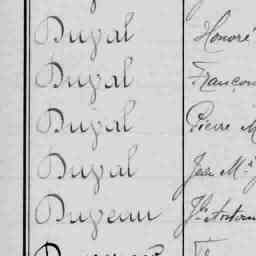 Duyal Honoré
Duyal Françoi
Duyal Pierre M
Duyal Jean M.
Duyeau Jh Antoin